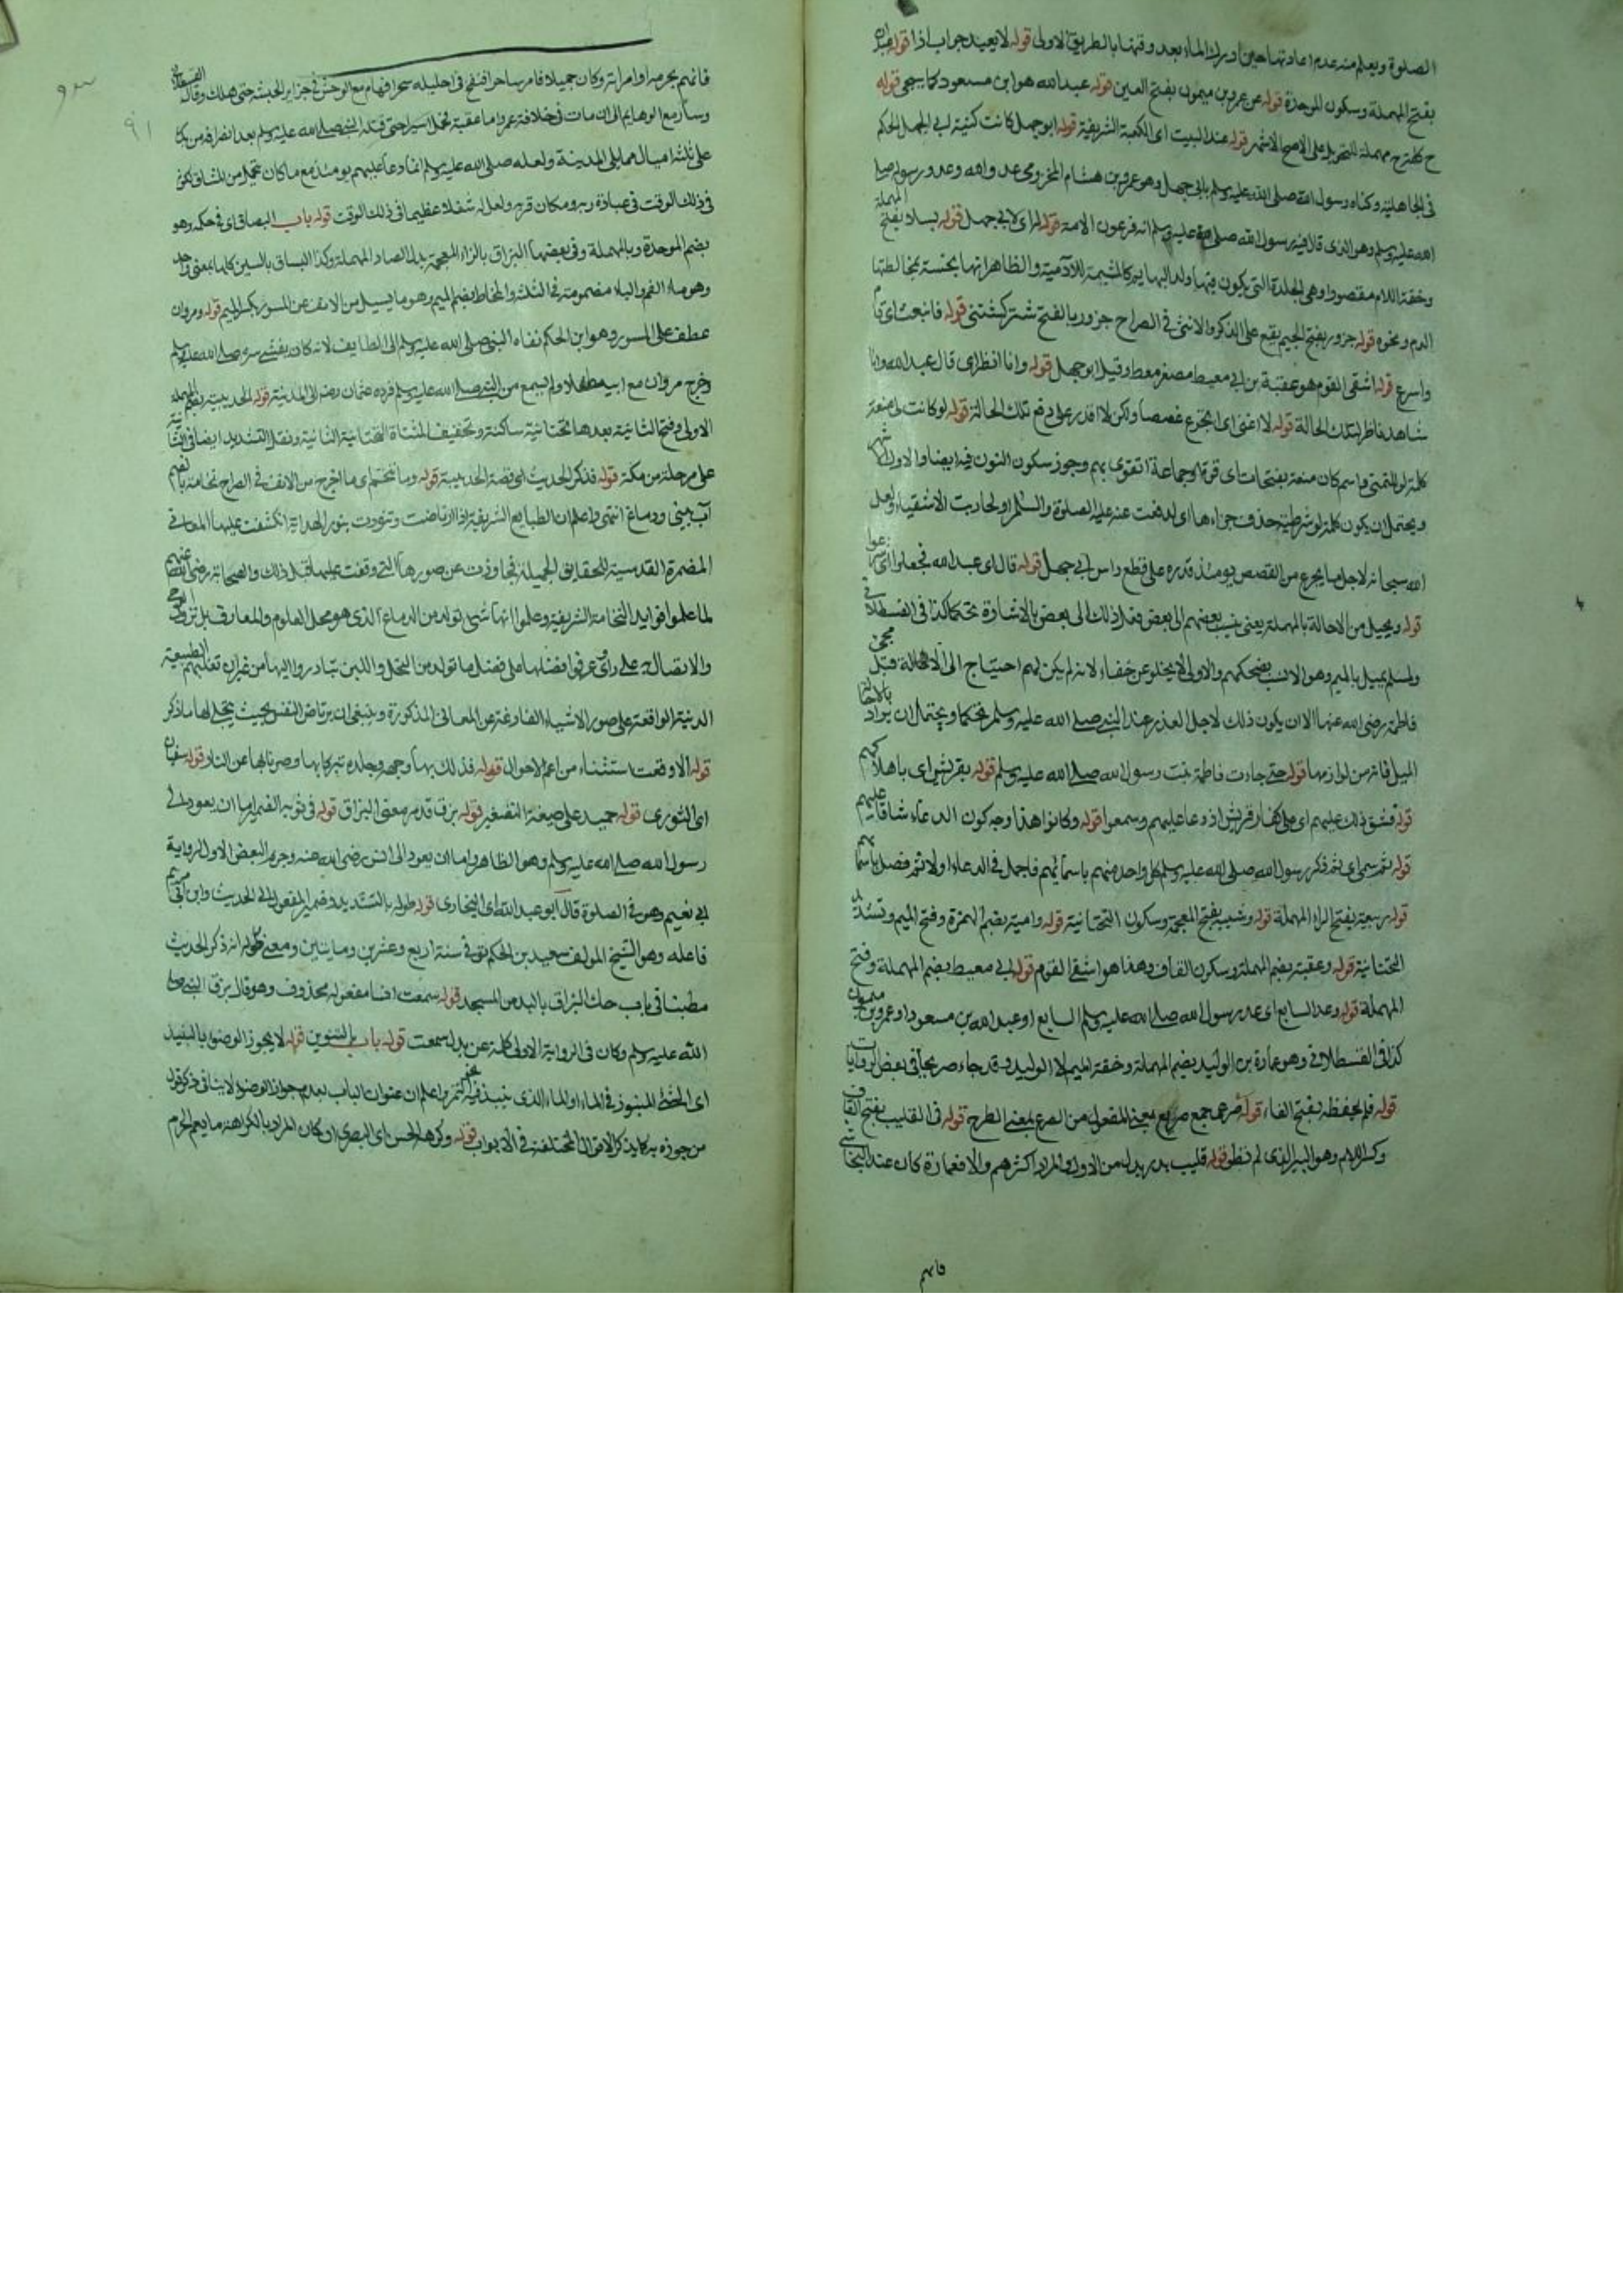 الصلوة ويعلم منه عدم اعادتها حين ادرك الماء بعد وقتها بالطريق الاولى قوله لا يعيد جواب اذا قوله
بفتح المهملة وسكون الموحدة قوله عن عمرو بن ميمون بفتح العين قوله عبد الله هو ابن مسعود كما سيجي قوله
ح كلمة ح مهملة للتحويل على الاصح الاشهر قوله عند البيت اى الكعبة الشريفة قوله ابو جهل كانت كنيته ابي الحكم
فى الجاهلية وكناه رسول الله صلى الله عليه وسلم بابي جهل وهو عمرو بن هشام المخزومى عدو الله وعدو رسوله صلى
الله عليه وسلم وهو الذى قال فيه رسول الله صلى الله عليه وسلم انه فرعون الامة قوله اى لابي جهل قوله بسلا بفتح المهملة
وخفة اللام مقصورا وهى الجلدة التى يكون فيها ولد البهايم كالمشيمة للآدمية والظاهر انها نجسة بمخالطتها
الدم ونحوه قوله جزور بفتح الجيم يقع على الذكر والانثى فى الصراح جزور بالفتح شتر كشتنى قوله فانبعث اى
واسرع قوله اشقى القوم هو عقبة بن ابي معيط مصغر معط وقيل ابو جهل قوله وانا انظر اى قال عبد الله وانا
شاهد ناظر لتلك الحالة قوله لا اغنى اى اتجرع غصصا ولكن لا اقدر على دفع تلك الحالة قوله لو كانت لى منعة
كلمة لو للتمنى واسم كان منعة بفتحات اى قوة او جماعة اتقوى بهم وجوز سكون النون فيه ايضا والاول اشهر
ويحتمل ان يكون كلمة لو شرطية حذف جزاءها اى لدفعت عنه عليه الصلوة والسلام او لحاربت الاشقياء ولعل
الله سبحانه لاجل ما يجرع من القصص يومئذ قدره على قطع راس ابي جهل قوله قال اى عبد الله فجعلوا اى شرعوا
قوله ويحيل من الاحالة بالمهملة يعنى ينسب بعضهم الى بعض فعل ذلك الى بعض بالاشارة تحكما كذا فى القسطلانى
ولمسلم يميل بالميم وهو الانسب بضحكهم والاولى لا يخلو عن خفاء لانه لم يكن لهم احتياج الى الاحالة قبل مجئ
فاطمة رضى الله عنها الا ان يكون ذلك لاجل العذر عند النبى صلى الله عليه وسلم تحكما ويحتمل ان يراد بالاحالة
الميل فانه من لوازمها قوله حتى جاءت فاطمة بنت رسول الله صلى الله عليه وسلم قوله بقريش اى باهلاكهم
قوله فشق ذلك عليهم اى على كفار قريش اذ دعا عليهم وسمعوا قوله وكانوا هذا وجه كون الدعاء شاقا عليهم
قوله ثم سمى اى ثم ذكر رسول الله صلى الله عليه وسلم كل واحد منهم باسمائهم فاجمل فى الدعاء اولا ثم فصل باسمائهم
قوله ربيعة بفتح الراء المهملة قوله وشيبة بفتح المعجمة وسكون التحتانية قوله وامية بضم الهمزة وفتح الميم وتشديد
التحتانية قوله وعقبة بضم المهملة وسكون القاف وهذا هو اشقى القوم قوله ابي معيط بضم المهملة وفتح
المهملة قوله وعد السابع اى عد رسول الله صلى الله عليه وسلم السابع او عبد الله بن مسعود او عمرو بن ميمون
كذا فى القسطلانى وهو عمارة بن الوليد بضم المهملة وخفة الميم لا الوليد وقد جاء صريحا فى بعض الروايات
قوله فلم يحفظه بفتح الفاء قوله صرعى جمع صريع بمعنى المفعول من الصرع بمعنى الطرح قوله فى القليب بفتح القاف
وكسر اللام وهو البير الذى لم تطو قوله قليب بدر بدل من الاول والمراد اكثرهم والا فعمارة كان عند النجاشى
فاتهم
فاتهم بحرمه او امراته وكان جميلا فامر ساحرا فنفخ فى احليله سحرا فهام مع الوحش فى جزاير الحبشة حتى هلك وقال
وسار مع الوحايم الى ان مات فى خلافة عمر واما عقبة فحمل اسيرا حتى قتله النبى صلى الله عليه وسلم بعد انصرافه من بدر
على ثلثة اميال مما يلى المدينة ولعله صلى الله عليه وسلم انما دعا عليهم يومئذ مع ما كان تحمل من المشاق لكونه
فى ذلك الوقت فى عبادة ربه ومكان قربه ولعل له شغلا عظيما فى ذلك الوقت قوله باب البصاق اى فى حكمه وهو
بضم الموحدة وبالمهملة وفى بعضها البزاق بالزاء المعجمة بدل الصاد المهملة وكذا البساق بالسين كلها بمعنى واحد
وهو ماء الفم والباء مضمومة فى الثلثة والمخاط بضم الميم وهو ما يسيل من الانف عن المسور بكسر الميم قوله ومروان
عطف على المسور وهو ابن الحكم نفاه النبى صلى الله عليه وسلم الى الطايف لانه كان يفشى سره صلى الله عليه وسلم
وخرج مروان مع ابيه طفلا ولم يسمع من النبى صلى الله عليه وسلم فرده عثمان رضه الى المدينة قوله الحديبية بضم المهملة
الاولى وفتح الثانية بعدها تحتانية ساكنة وتخفيف المثناة التحتانية الثانية ونقل التشديد ايضا فى الثانية
على مرحلة من مكة قوله فذكر الحديث اى قصة الحديبية قوله وما تنخم اى ما اخرج من الانف فى الصراح نخامة بالضم
آب بينى ودماغ انتهى واعلم ان الطبايع الشريفة اذا ارتاضت وتنورت بنور الهداية انكشفت عليها المعانى
المضمرة القدسية للحقايق الجميلة فتجاوزت عن صورها التى وقفت عليها قبل ذلك والصحابة رضى الله عنهم
لما علموا فوايد النخامة الشريفة وعلموا انها شى تولد من الدماغ الذى هو محل العلوم والمعارف
والاتصال وعرفوا فضلها على فضل ما تولد من النحل واللبن تبادروا اليها من غير ان تغلبهم الطبيعة
الدنية الواقعة على صور الاشياء الفارغة عن المعانى المذكورة وينبغى ان يرتاض النفس بحيث يتجلى لها ما ذكر
قوله الا وقعت استثناء من اعم الاحوال قوله فدلك بها وجهه وجلده تبركا بها وصرنا بها عن النار قوله سفيان
اى الثورى قوله حميد على صيغة التصغير قوله بزق قد مر معنى البزاق قوله فى ثوبه الضمير اما ان يعود الى
رسول الله صلى الله عليه وسلم وهو الظاهر واما ان يعود الى انس رضى الله عنه وجزم البعض الاول لرواية
ابي نعيم وهو فى الصلوة قال ابو عبد الله اى البخارى قوله طوله بالتشديد وضمير المفعول الى الحديث وابن ابي مريم
فاعله وهو الشيخ المولف سعيد بن الحكم توفى سنة اربع وعشرين ومايتين ومعنى طوله انه ذكر الحديث
مطنبا فى باب حك البزاق باليد من المسجد قوله سمعت انسا مفعوله محذوف وهو قال بزق النبى صلى
الله عليه وسلم وكان فى الرواية الاولى كلمة عن بدل سمعت قوله باب بالتنوين قوله لا يجوز الوضوء بالنبيذ
اى المنبوذ فى الماء او الماء الذى ينبذ فيه نحو التمر واعلم ان عنوان الباب بعدم جواز الوضوء لا ينافى ذكر قول
من جوزه به كما يذكر الاقوال المختلفة فى الابواب قوله وكرهه الحسن اى البصرى او كان المراد بالكراهة ما يعم الحرام
٩١